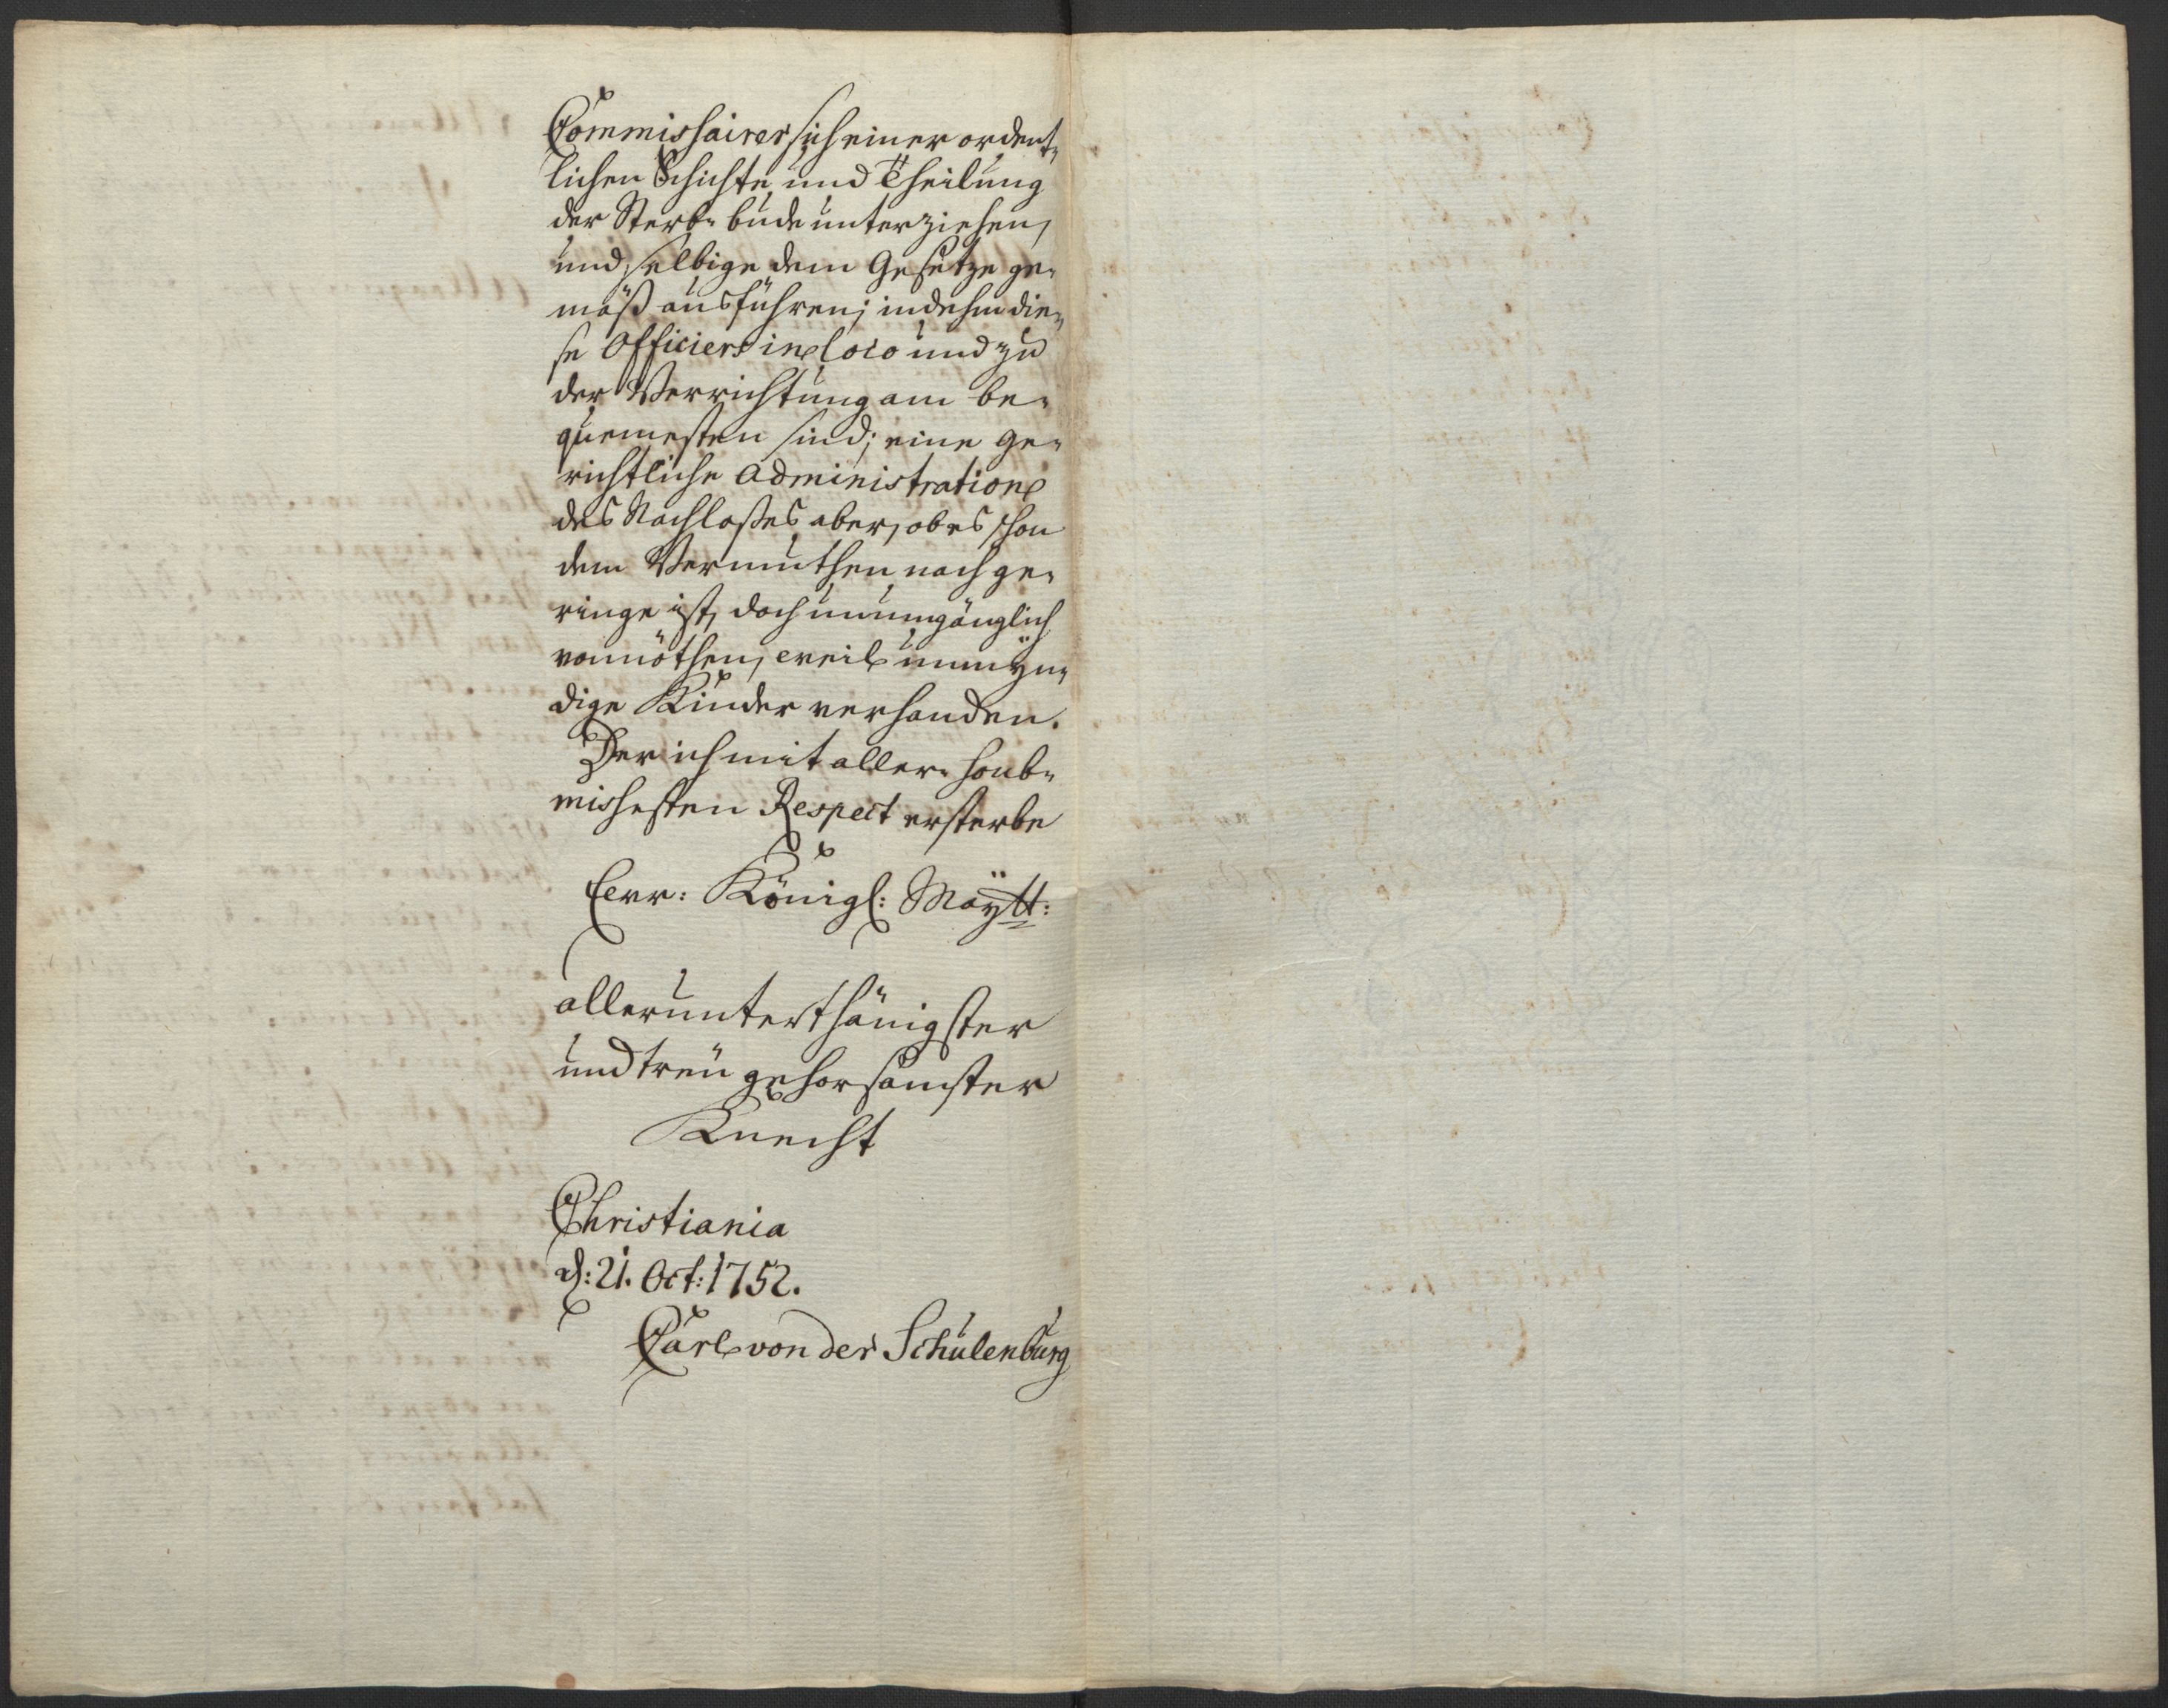 Commissaires sich einer ordent-
lichen Schichte und Theilung
der Sterb-bude unterziehen,
und selbige dem Gesetze ge-
mäß ausführen; indehm die-
se Officiers in loco und zu
der Verrichtung am be-
quemesten sind; eine ge-
richtliche Administration
des Nachlaßes aber, ob es schon
dem Vermuthen nach ge-
ringe ist, doch unumgänglich
vonnöthen, weil unmün-
dige Kinder verhanden.
Der ich mit aller-
Respect ersterbe
Königl: Maÿtt:
allerunterthänigster
und treü gehorsamster
Knecht
Christiania
d: 21. Oct: 1752.
Carl von der Schulenburg